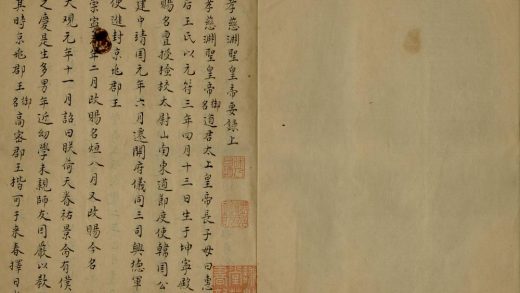 孝慈淵聖皇帝要錄上
孝慈淵聖皇帝御名道君太上皇帝長子母曰惠
后王氏以元符三年四月十三日生于坤寧殿
賜名亶授撿挍太尉山南東道節度使韓國公
建中靖國元年六月遷開府儀同三司興德軍
使進封京兆郡王
崇寧年二月改賜名烜八月又改賜今名
大观元年十一月詔曰朕荷天眷祐景命有僕
之慶是生多男年近幼學未親師友因嚴以教
其時京兆郡王御名高密郡王楷可于來春擇日